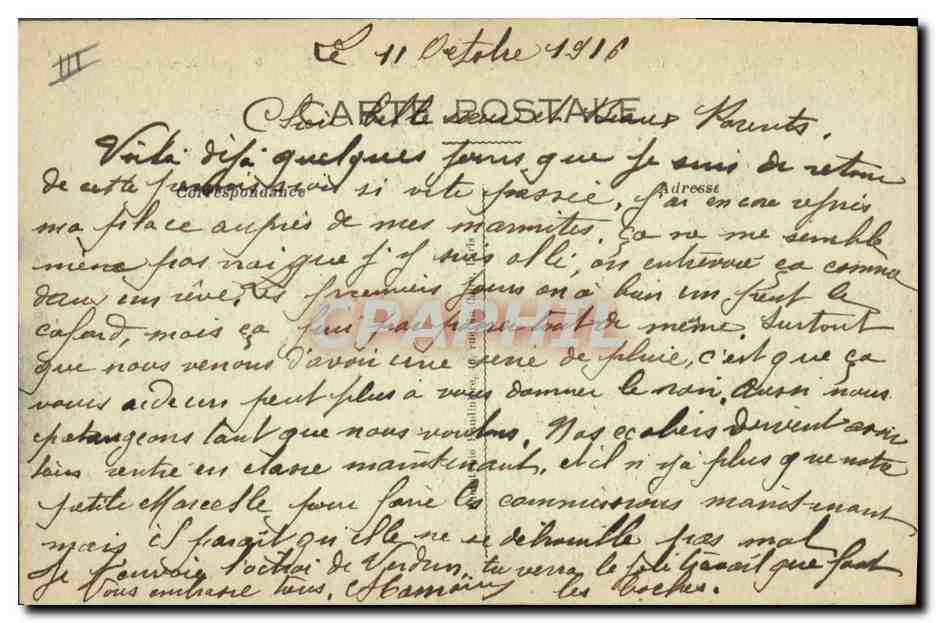 III
Le 11 Octobre 1916
CARTE POSTALE
Chère belle sœur et beaux Parents.
Voilà déjà quelques jours que je suis de retour
Correspondance
Adresse
de cette permission si vite passée, j'ai encore repris
ma place auprès de mes marmites. ça ne me semble
même pas vrai que j'y suis allé, on entrevoit ça comme
dans un rêve, les premiers jours on a bien un peut le
cafard, mais ça passe tout de même surtout
CPARAPHIL
que nous venons d'avoir une de pluie, c'est que ça
vous aide un peut plus à vous donner le noir. Aussi nous
patangeons tant que nous voulons. Nos écoliers doivent avoir
tous rentré en classe maintenant, et il n'y a plus que notre
petite Marcelle pour faire les commissions maintenant
mais il parait qu'elle ne se débrouille pas mal
Je t'envoie l'octroi de Verdun, tu verra le joli travail que font
les boches.
Vous embrasse tous.